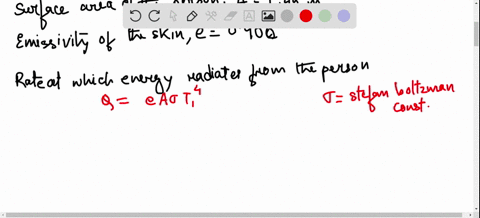 Surface area
Emissivity of the skin, e =
Rate at which energy radiates from the person
Q = eAσT₁⁴
σ = stefan boltzman
const.